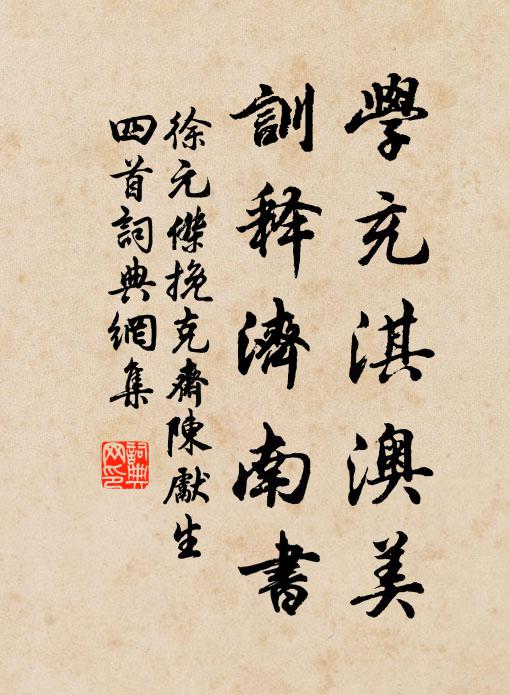 學充淇澳美
訓释濟南書
徐元傑挽克齋陳獻生
四首詞典網集
詞典网印